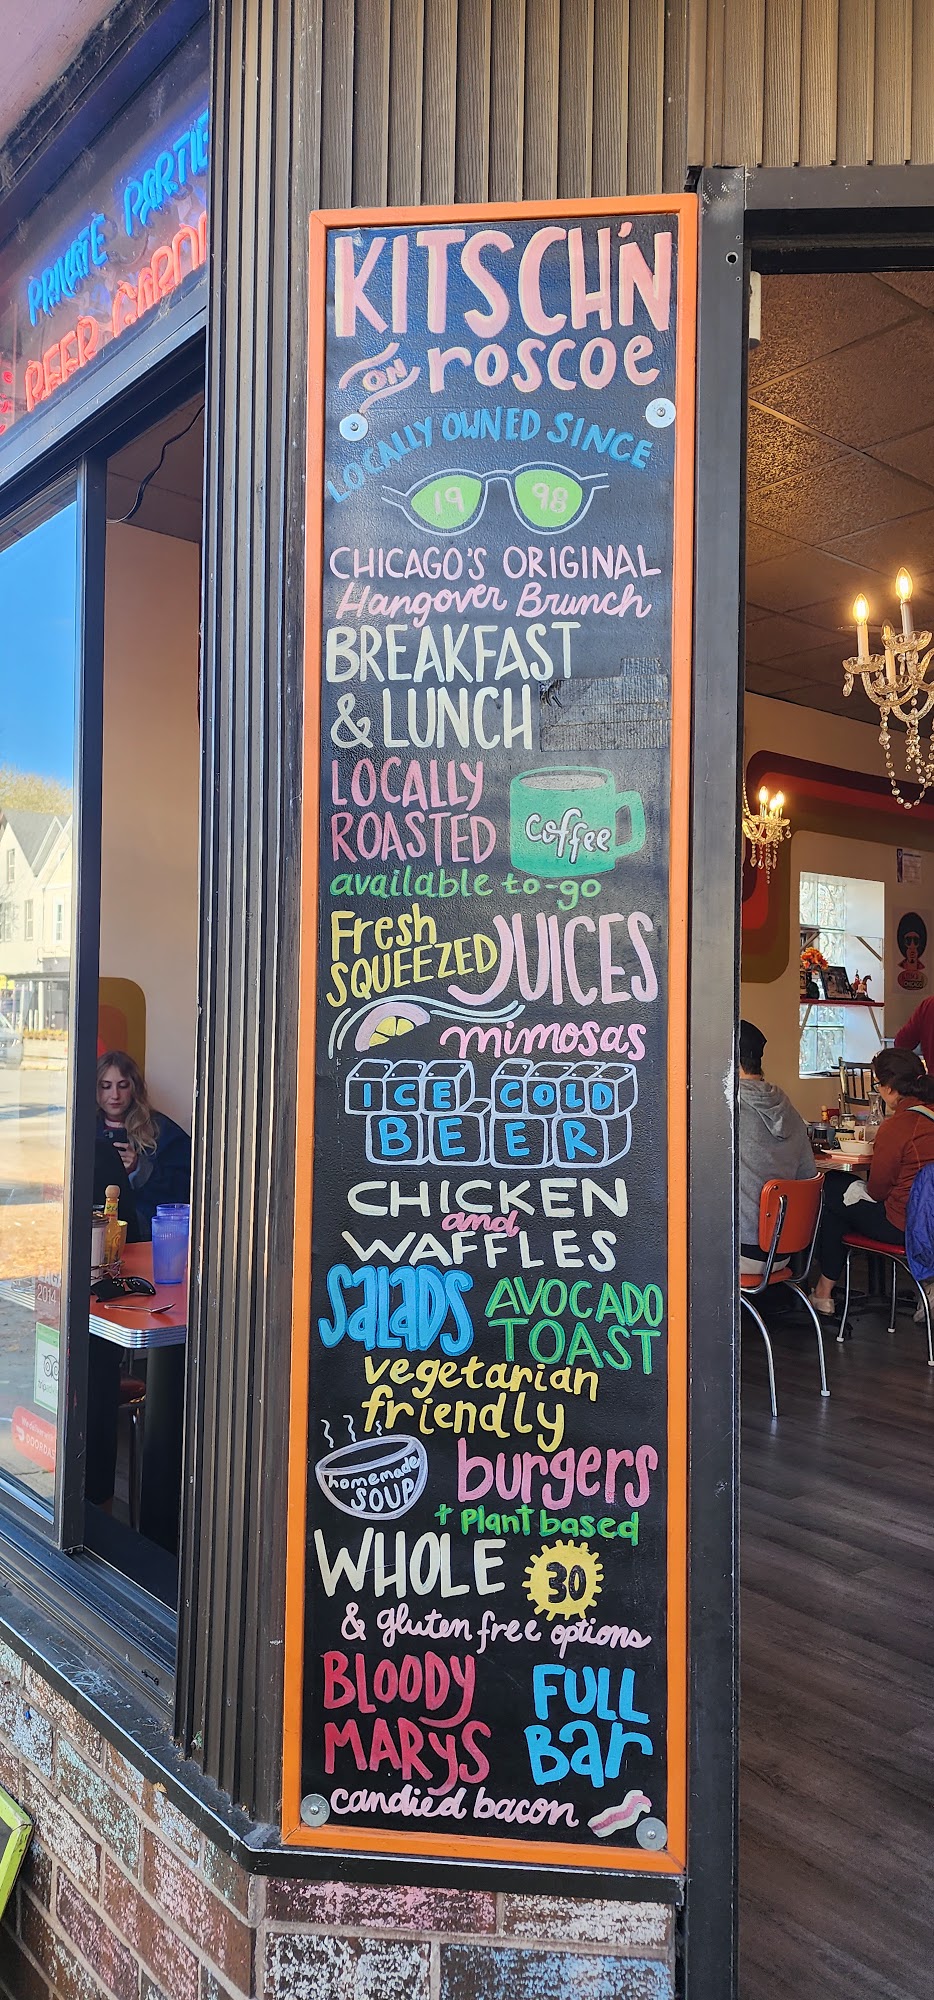 PRIVATE PARTIE
BEER GARDE
KITSCH'N
ON roscoe
LOCALLY OWNED SINCE
19 98
CHICAGO'S ORIGINAL
Hangover Brunch
BREAKFAST
& LUNCH
LOCALLY
ROASTED
coffee
available to-go
Fresh
SQUEEZED JUICES
mimosas
ICE COLD
BEER
CHICKEN
and
WAFFLES
SALADS
AVOCADO
TOAST
vegetarian
friendly
homemade
SOUP
burgers
+ Plant based
WHOLE 30
& gluten free options
BLOODY
MARYS
FULL
Bar
candied bacon
2014